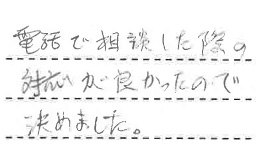 電話で相談した際の
対応が良かったので
決めました。